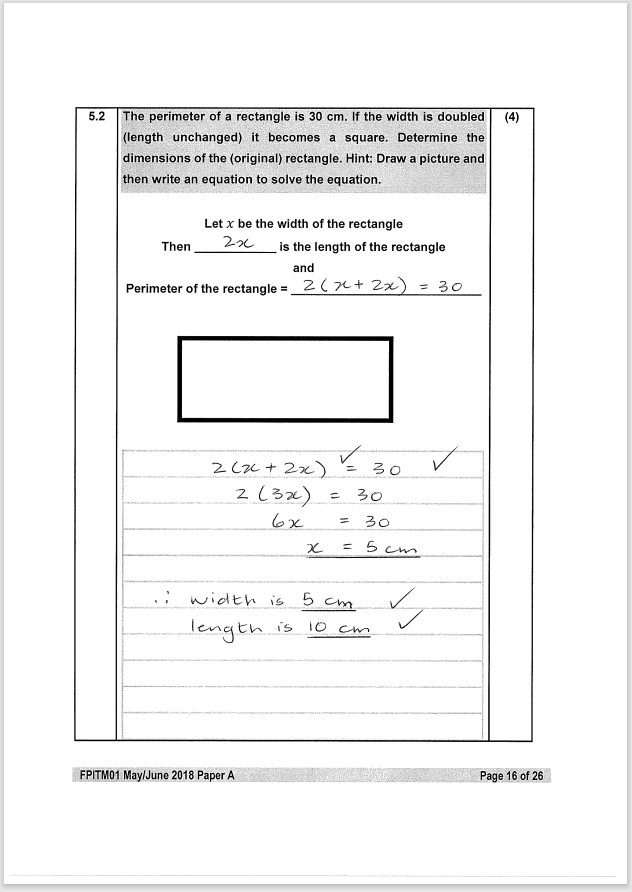 5.2 The perimeter of a rectangle is 30 cm. If the width is doubled (4)
(length unchanged) it becomes a square. Determine the
dimensions of the (original) rectangle. Hint: Draw a picture and
then write an equation to solve the equation.
Let x be the width of the rectangle
Then 2x is the length of the rectangle
and
Perimeter of the rectangle = 2(x + 2x) = 30
2(x + 2x) ✓= 30 ✓
2(3x) = 30
6x = 30
x = 5 cm
∴ width is 5 cm ✓
length is 10 cm ✓
FPITM01 May/June 2018 Paper A Page 16 of 26